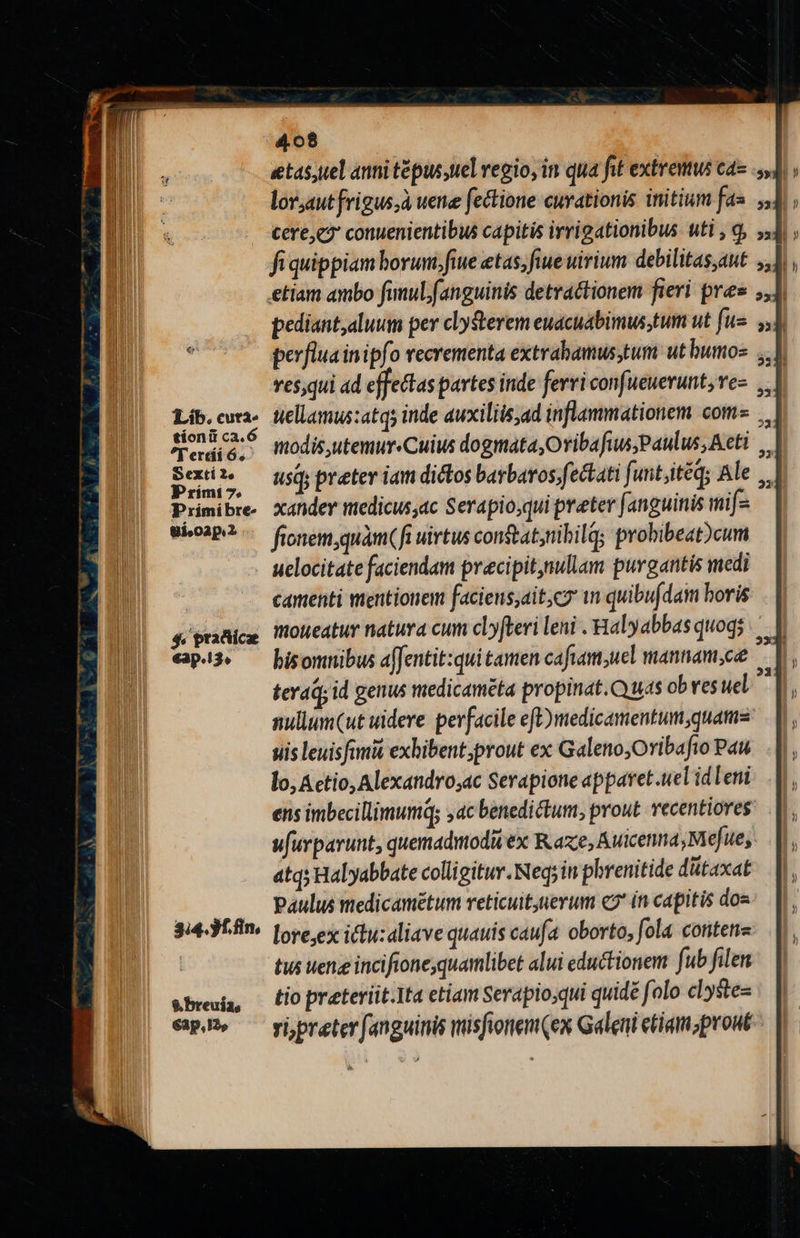 408
ætas,uel anni tẽpus,uel regio, in qua ſit extremus ca= „
lor,aut frigus,à uenæ ſectione curationis initium fa= „
cere,& conuenientibus capitis irrigationibus uti , q, „
ſi quippiam horum,ſiue ætas,ſiue uirium debilitas,aut „
etiam ambo ſimul,ſanguinis detractionem fieri præ= „
pediant,aluum per clysterem euacuabimus,tum ut ſu= „
perflua in ipſo recrementa extrahamus,tum ut humo= „
res,qui ad effectas partes inde ferri conſueuerunt, re= „
Lib. cura= uellamus:atq; inde auxiliis,ad inflammationem com= „
tionũ ca.6 modis,utemur.Cuius dogmata,Oribaſius,Paulus,Aeti „
Tertii 6. 
Sexti 2. usq; præter iam dictos barbaros,ſectati ſunt,itẽq; Ale „
Primi 7.
Primi bre= xander medicus,ac Serapio,qui præter ſanguinis miſ=
uii.cap.2 ſionem,quàm(ſi uirtus constat,nihilq; prohibeat)cum
uelocitate faciendam præcipit,nullam purgantis medi
camenti mentionem faciens,ait,& in quibuſdam horis
5. practicæ moueatur natura cum clyſteri leni . Halyabbas quoq; „
cap.13. his omnibus aſſentit:qui tamen caſiam,uel mannam,cæ „
teraq; id genus medicamẽta propinat.Quas ob res uel
nullum(ut uidere perfacile eſt)medicamentum,quam=
uis leuisſimũ exhibent,prout ex Galeno,Oribaſio Pau
lo, Aetio, Alexandro,ac Serapione apparet.uel id leni
ens imbecillimumq; ,ac benedictum, prout recentiores
uſurparunt, quemadmodũ ex Raze, Auicenna,Meſue,
atq; Halyabbate colligitur.Neq; in phrenitide dũtaxat
Paulus medicamẽtum reticuit,uerum & in capitis do=
3.4.Pſ.fin. lore,ex ictu: aliave quauis cauſa oborto, ſola conten=
tus uenæ inciſione,quamlibet alui eductionem ſub ſilen
5.breuia, tio præteriit.Ita etiam Serapio,qui quidẽ ſolo clyste=
cap.12. ri,præter ſanguinis misſionem(ex Galeni etiam,prout